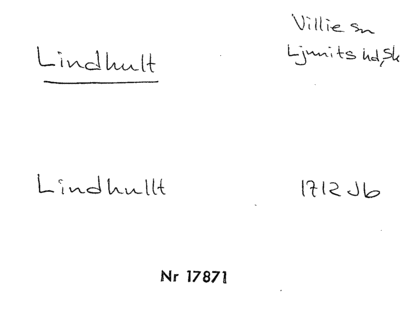 Villie sn
Lindhult
Ljunits hd, Sk
Lindhullt 1712 Jb
Nr 17871